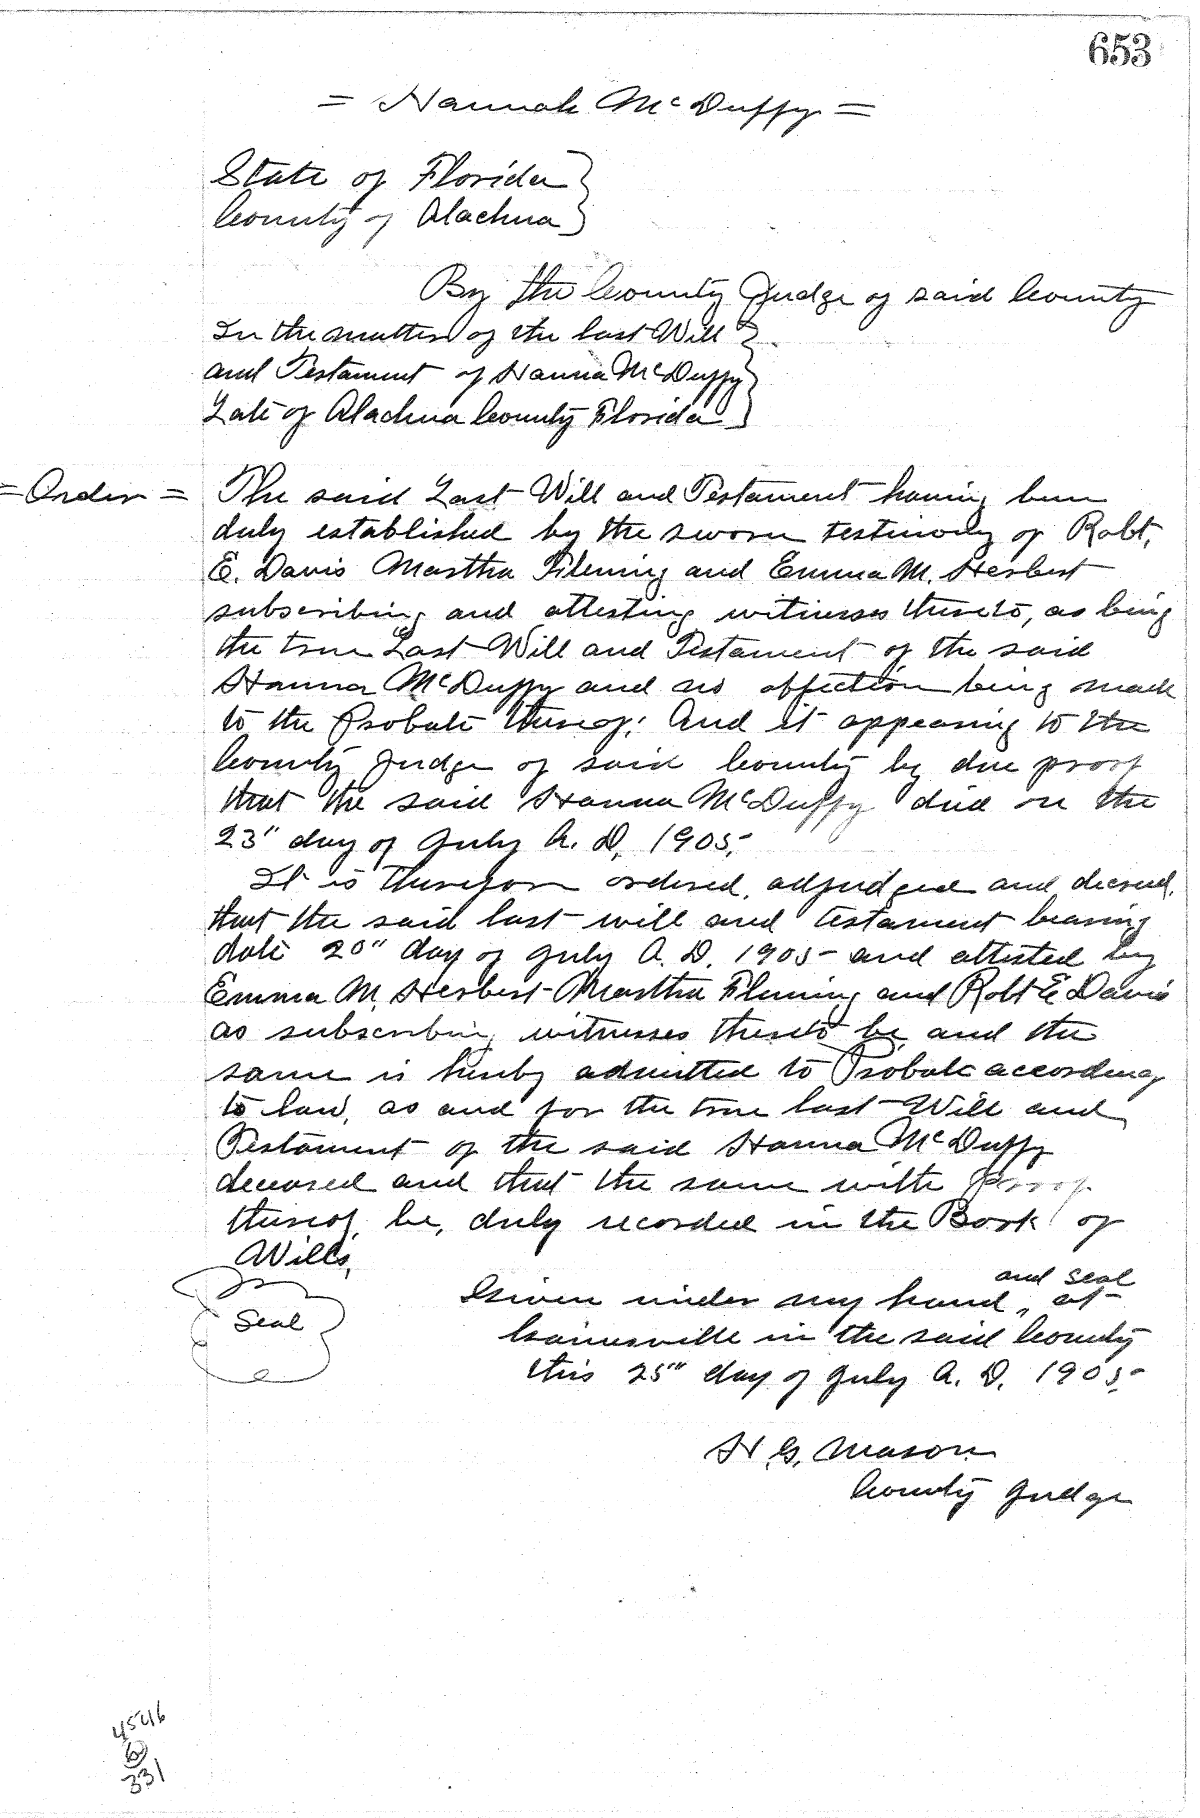 653
= Hannah McDuffy =
State of Florida }
County of Alachua }
By the County Judge of said County
In the matter of the last Will }
and Testament of Hanna McDuffy }
Late of Alachua County Florida }
= Order = The said Last Will and Testament having been
duly established by the sworn testimony of Robt.
E. Davis Martha Fleming and Emma M. Herbert
subscribing and attesting witnesses thereto, as being
the true Last Will and Testament of the said
Hanna McDuffy and no offection being made
to the Probate thereof; And it appearing to the
County Judge of said County by due proof
that the said Hanna McDuffy died on the
23" day of July A. D. 1905.
It is therefore ordered, adjudged and decreed,
that the said last will and testament bearing
date 20" day of July A. D. 1905 and attested by
Emma M. Herbert Martha Fleming and Robt E Davis
as subscribing witnesses thereto be, and the
same is hereby admitted to Probate according
to law, as and for the true last Will and
Testament of the said Hanna McDuffy
deceased and that the same with proof
thereof, be, duly recorded in the Book of
Wills,
Seal
and seal
Given under my hand, at
Gainesville in the said County
this 25" day of July A. D. 1905.
H. G. Mason
County Judge
4546
6
331